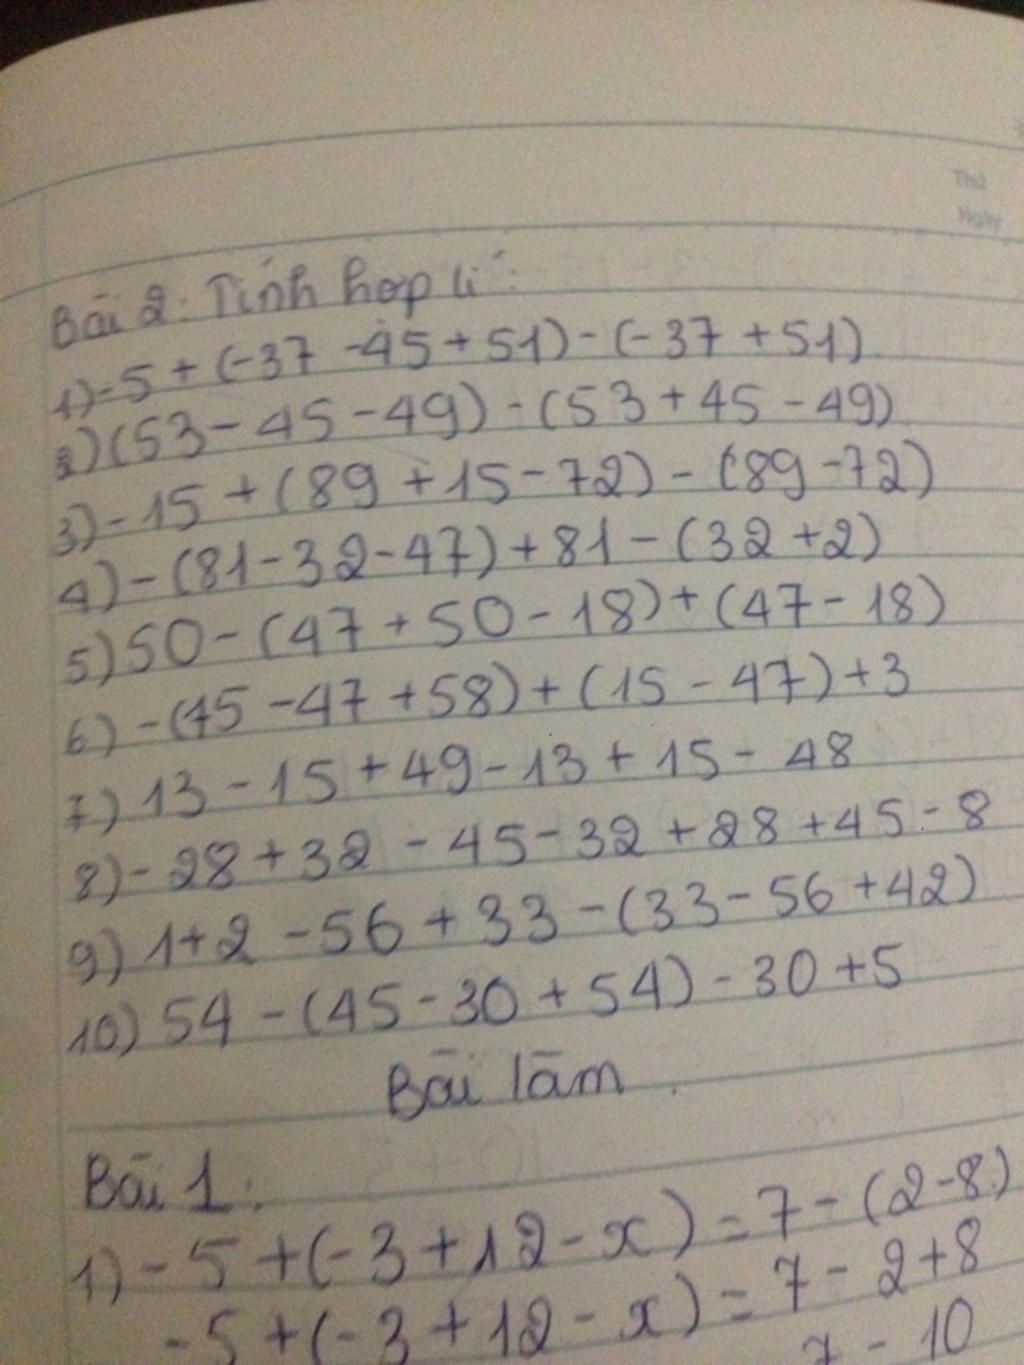 Thứ
Ngày
Bài 2: Tính hợp lí:
1) -5 + (-37 - 45 + 51) - (-37 + 51)
2) (53 - 45 - 49) - (53 + 45 - 49)
3) - 15 + (89 + 15 - 72) - (89 - 72)
4) - (81 - 32 - 47) + 81 - (32 + 2)
5) 50 - (47 + 50 - 18) + (47 - 18)
6) - (15 - 47 + 58) + (15 - 47) + 3
7) 13 - 15 + 49 - 13 + 15 - 48
8) - 28 + 32 - 45 - 32 + 28 + 45 - 8
9) 1 + 2 - 56 + 33 - (33 - 56 + 42)
10) 54 - (45 - 30 + 54) - 30 + 5
Bài làm.
Bài 1:
1) - 5 + (- 3 + 12 - x) = 7 - (2 - 8)
- 5 + (- 3 + 12 - x) = 7 - 2 + 8
7 - 10